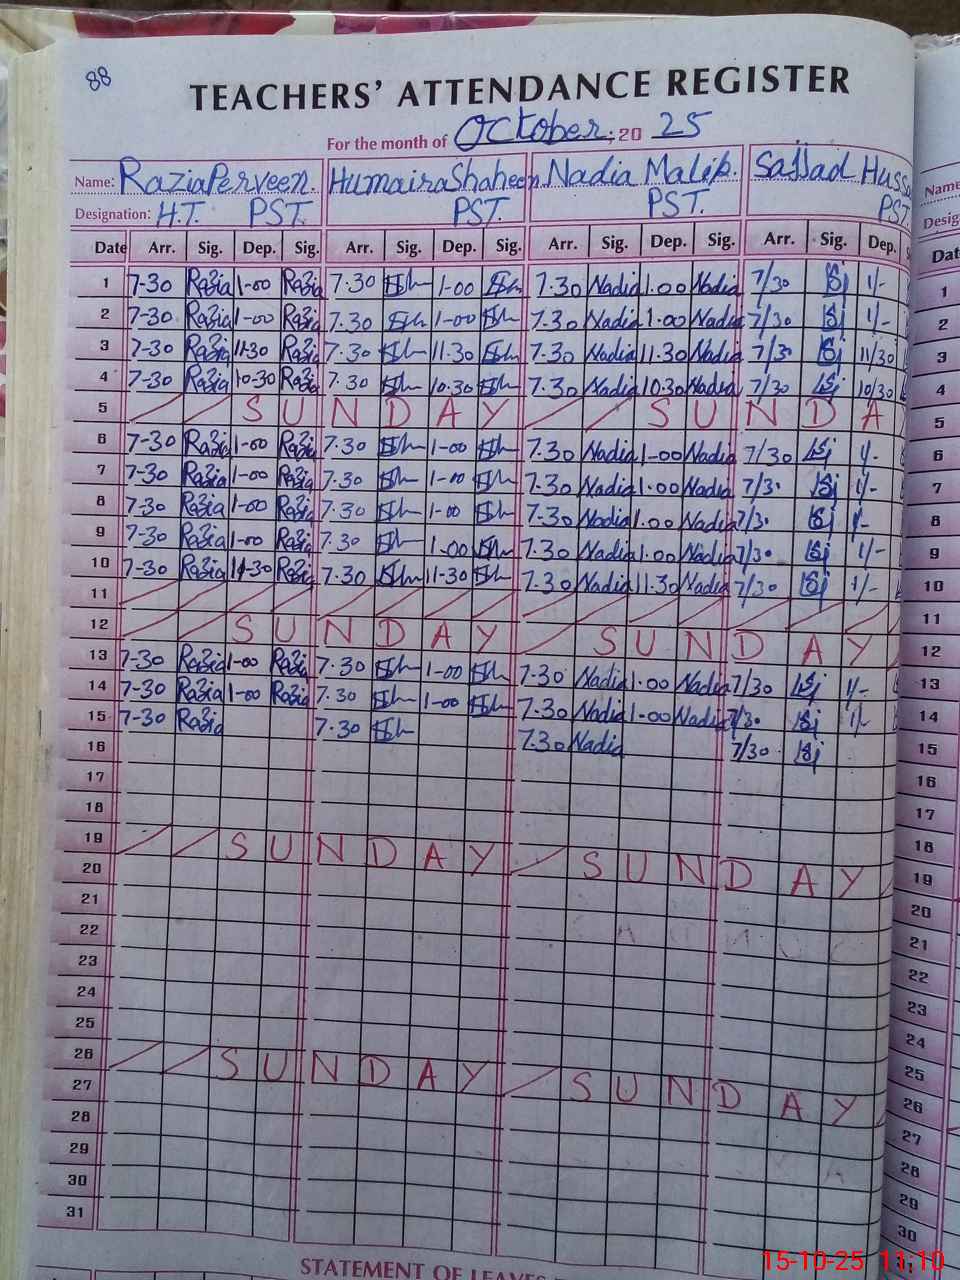 88
TEACHERS' ATTENDANCE REGISTER
For the month of October, 20 25
Name: Razia Perveen. Humaira Shaheen Nadia Malik. Sajjad Hussa
Designation: H.T. PST. PST. PST. PST.
Date Arr. Sig. Dep. Sig. Arr. Sig. Dep. Sig. Arr. Sig. Dep. Sig. Arr. Sig. Dep.
1 7-30 Razia 1-00 Razia 7.30 Sh 1-00 Sh 7.30 Nadia 1.00 Nadia 7/30 Sj 1/-
2 7-30 Razia 1-00 Razia 7.30 Sh 1-00 Sh 7.30 Nadia 1.00 Nadia 7/30 Sj 1/-
3 7-30 Razia 11-30 Razia 7.30 Sh 11-30 Sh 7.30 Nadia 11.30 Nadia 7/30 Sj 11/30
4 7-30 Razia 10-30 Razia 7.30 Sh 10.30 Sh 7.30 Nadia 10.30 Nadia 7/30 Sj 10/30
5 SUNDAY SUNDA
6 7-30 Razia 1-00 Razia 7.30 Sh 1-00 Sh 7.30 Nadia 1-00 Nadia 7/30 Sj 1/-
7 7-30 Razia 1-00 Razia 7.30 Sh 1-00 Sh 7.30 Nadia 1.00 Nadia 7/30 Sj 1/-
8 7-30 Razia 1-00 Razia 7.30 Sh 1-00 Sh 7.30 Nadia 1.00 Nadia 7/30 Sj 1/-
9 7-30 Razia 1-00 Razia 7.30 Sh 1-00 Sh 7.30 Nadia 1.00 Nadia 7/30 Sj 1/-
10 7-30 Razia 11-30 Razia 7.30 Sh 11-30 Sh 7.30 Nadia 11.30 Nadia 7/30 Sj 1/-
11
12 SUNDAY SUNDAY
13 7-30 Razia 1-00 Razia 7.30 Sh 1-00 Sh 7.30 Nadia 1.00 Nadia 7/30 Sj 1/-
14 7-30 Razia 1-00 Razia 7.30 Sh 1-00 Sh 7.30 Nadia 1-00 Nadia 7/30 Sj 1/-
15 7-30 Razia 7.30 Sh 7.30 Nadia 7/30 Sj
16
17
18
19 SUNDAY SUNDAY
20
21
22
23
24
25
26 SUNDAY SUNDAY
27
28
29
30
31
STATEMENT OF LEAVES
Name
Desig
Dat
1
2
3
4
5
6
7
8
9
10
11
12
13
14
15
16
17
18
19
20
21
22
23
24
25
26
27
28
29
30
15-10-25 11:10